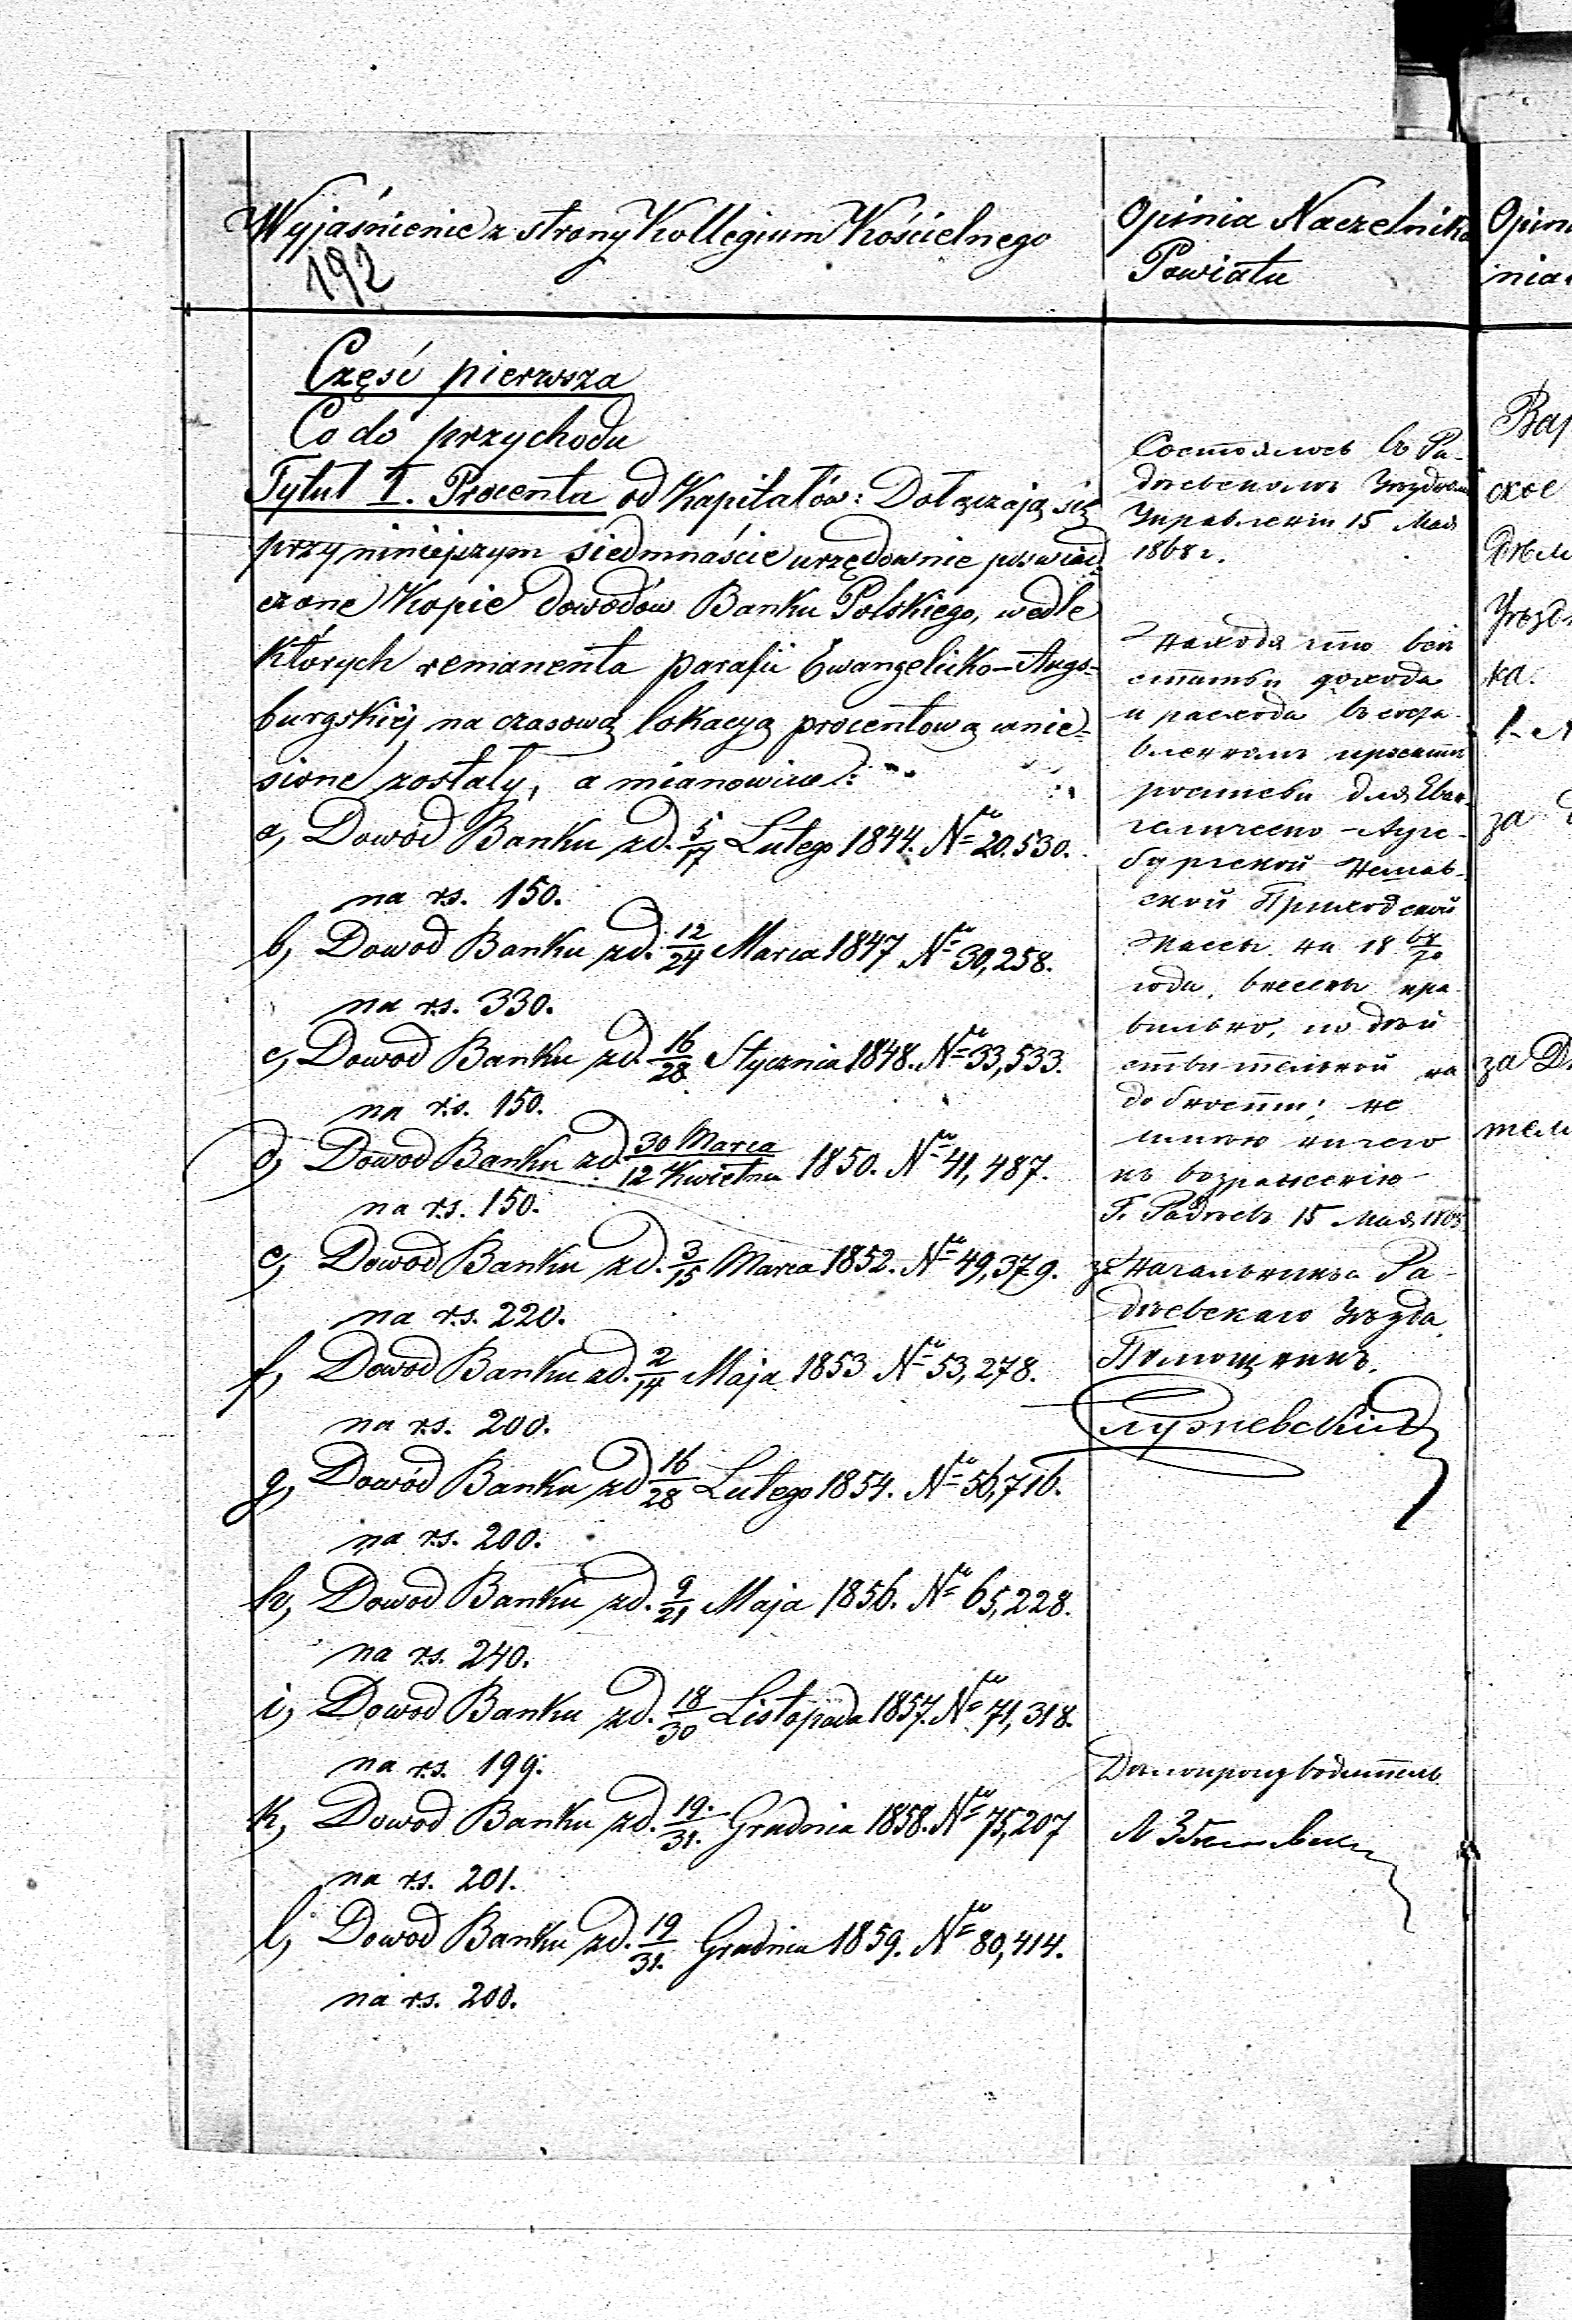 Wyjaśnienie z strony Kollegium Kościelnego
192
Część pierwsza
Co do przychodu
Tytuł I. Procenta od Kapitałów: Dołączają się
przy niniejszym siedmnaście urzędownie poswiad=
czone Kopie dowodów Banku Polskiego, wedle
których remanenta parafii Ewangelicko-Augs=
burgskiej na czasową lokacyą procentową wnie=
sione zostały, a mianowicie:
a, Dowód Banku zd. 5/17 Lutego 1844. No 20.530.
na rs. 150.
b, Dowod Banku zd. 12/24 Marca 1847 No 30,258.
na rs. 330.
c, Dowod Banku zd. 16/28 Stycznia 1848. No 33,533.
na rs. 150.
d, Dowod Banku zd 30 Marca/12 Kwietnia 1850. No 41,487.
na rs. 150.
e, Dowod Banku zd. 3/15 Marca 1852. No 49,379.
na rs. 220.
f, Dowod Banku zd. 2/14 Maja 1853 No 53,278.
na rs. 200.
g, Dowód Banku zd 16/28 Lutego 1854. No 56,716.
na rs. 200.
h, Dowod Banku zd. 9/21 Maja 1856. No 65,228.
na rs. 240.
i, Dowod Banku zd. 18/30 Listopada 1857. No 71,318.
na rs. 199.
k, Dowod Banku zd. 19./31. Grudnia 1858. No 75,207
na rs. 201.
l, Dowod Banku zd. 19/31. Grudnia 1859. No 80,414.
na rs. 200.
Opinia Naczelnika
Powiatu
Состоялось въ Ра-
дѣевскомъ Уѣздномъ
Управленіи 15 Мая
1868 г.
Находя что всѣ
статьи дохода
и расхода въ состав-
ленномъ проектѣ
росписи для Еван-
гелическо-Аугс-
бургской
ской Приходской
Кассы на 18 68/70
года, внесены пра-
вильно, по дѣй
ствительной на
добности; не
имѣю ничего
къ возраженію
Г. Радѣевъ 15 Мая 1868
за Начальника Ра-
дѣевскаго Уѣзда
Помощникъ,
Дѣлопроизводитель
Opini
nia
Вар
ское
Уѣзд
ка.
за
за